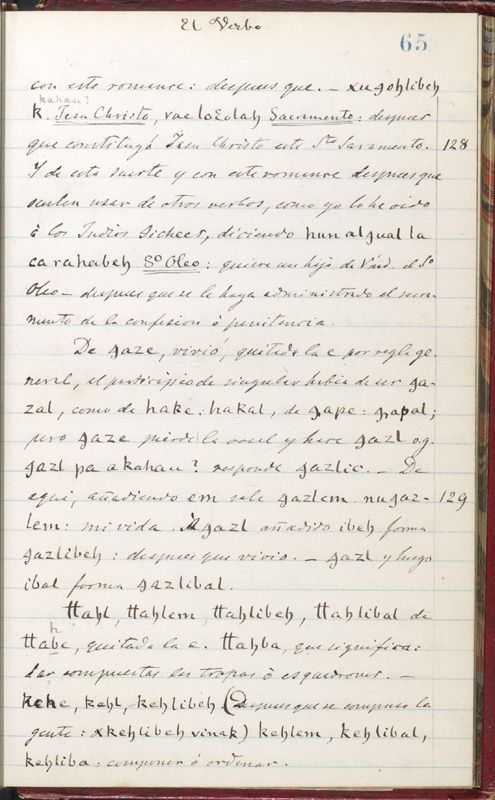 El Verbo
65
con este romance: despues que. — xugohlibeh
kahau?
k. Jesu Christo, vae loEolah Sacramento: despues
que constituyó Jesu Christo este Sto Saramento. 128
Y de esta suerte y con este romance despues que
suelen usar de otros verbos, como yo lo he oido
à los Indios Gichees, diciendo hun algual la
ca rahabeh So Oleo: quiere un hijo de Vmd. el So
Oleo — despues que se le haya administrado el sacra-
mento de la confesion ò penitencia.
De gaze, vivió, quitada la e por regla ge-
neral, el participio de singular habia de ser ga-
zal, como de hake: hakal, de gape: gapal;
pero gaze pierde la vocal y hace gazl v.g.
gazl pa a kahau? responde gazlic. — De
aqui, añadiendo em sale gazlem nugaz- 129
lem: mi vida. A gazl añadido ibeh forma
gazlibeh: despues que vivio. — gazl y luego
ibal forma gazlibal.
Ttahl, Ttahlem, Ttahlibeh, Ttahlibal de
h
Ttabe, quitada la e. Ttahba, que significa:
dar compuestas las tropas ò esquadrones. —
kehe, kehl, kehlibeh (Despues que se compuso la
gente: xkehlibeh vinak) kehlem, kehlibal,
kehliba: componer ó ordenar.